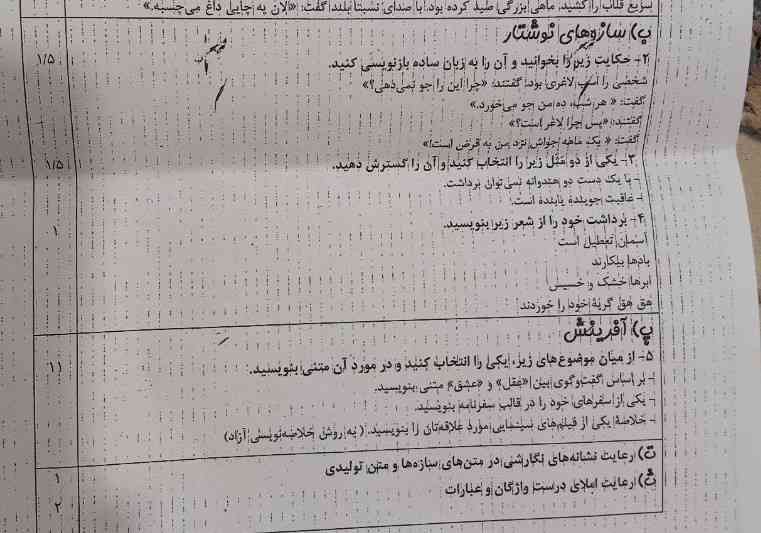 سریع قلاب را کشید. ماهی بزرگی صید کرده بود. با صدای نسبتاً بلند گفت: «الان به جایی داغ می‌چسبه.»
ب) سازه‌های نوشتار
۲- حکایت زیر را بخوانید و آن را به زبان ساده بازنویسی کنید. ۱/۵
شخصی را اسب لاغری بود. گفتند: «چرا این را جو نمی‌دهی؟»
گفت: « هر شب، ده من جو می‌خورد.»
گفتند: «پس چرا لاغر است؟»
گفت: « یک ماهه جواش نزد من به قرض است!»
۳- یکی از دو مَثَل زیر را انتخاب کنید و آن را گسترش دهید. ۱/۵
- با یک دست دو هندوانه نمی‌توان برداشت.
- عاقبت جوینده یابنده است.
۴- برداشت خود را از شعر زیر بنویسید. ۱
آسمان تعطیل است
بادها بیکارند
ابرها خشک و خسیس
هق هق گریهٔ خود را خوردند
پ) آفرینش
۵- از میان موضوع‌های زیر، یکی را انتخاب کنید و در مورد آن متنی بنویسید. ۱۱
- بر اساس گفت‌وگوی بین «عقل» و «عشق» متنی بنویسید.
- یکی از سفرهای خود را در قالب سفرنامه بنویسید.
- خلاصهٔ یکی از فیلم‌های سینمایی مورد علاقه‌تان را بنویسید. (به روش خلاصه‌نویسی آزاد)
ت) رعایت نشانه‌های نگارشی در متن‌های سازه‌ها و متن تولیدی ۱
ث) رعایت املای درست واژگان و عبارات ۲